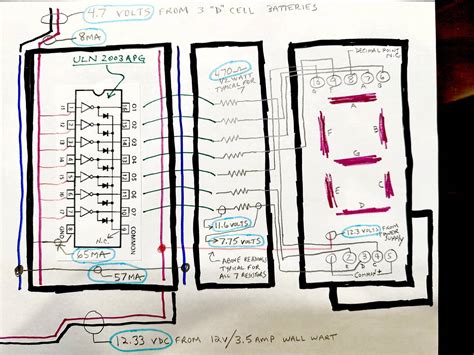 4.7 VOLTS FROM 3 "D" CELL BATTERIES
8MA
ULN 2003APG
I1 O1
I2 O2
I3 O3
I4 O4
I5 O5
I6 O6
I7 O7
GND COMMON
N.C.
65MA
57MA
12.33 VDC FROM 12V/3.5AMP WALL WART
470Ω
1/2 WATT
TYPICAL FOR
7
11.6 VOLTS
7.75 VOLTS
ABOVE READINGS
TYPICAL FOR
ALL 7 RESISTORS
DECIMAL POINT
N.C.
10 9 8 7 6
A
F B
G
E C
D
12.3 VOLTS FROM
POWER
SUPPLY
1 2 3 4 5
E D C
COMMON +